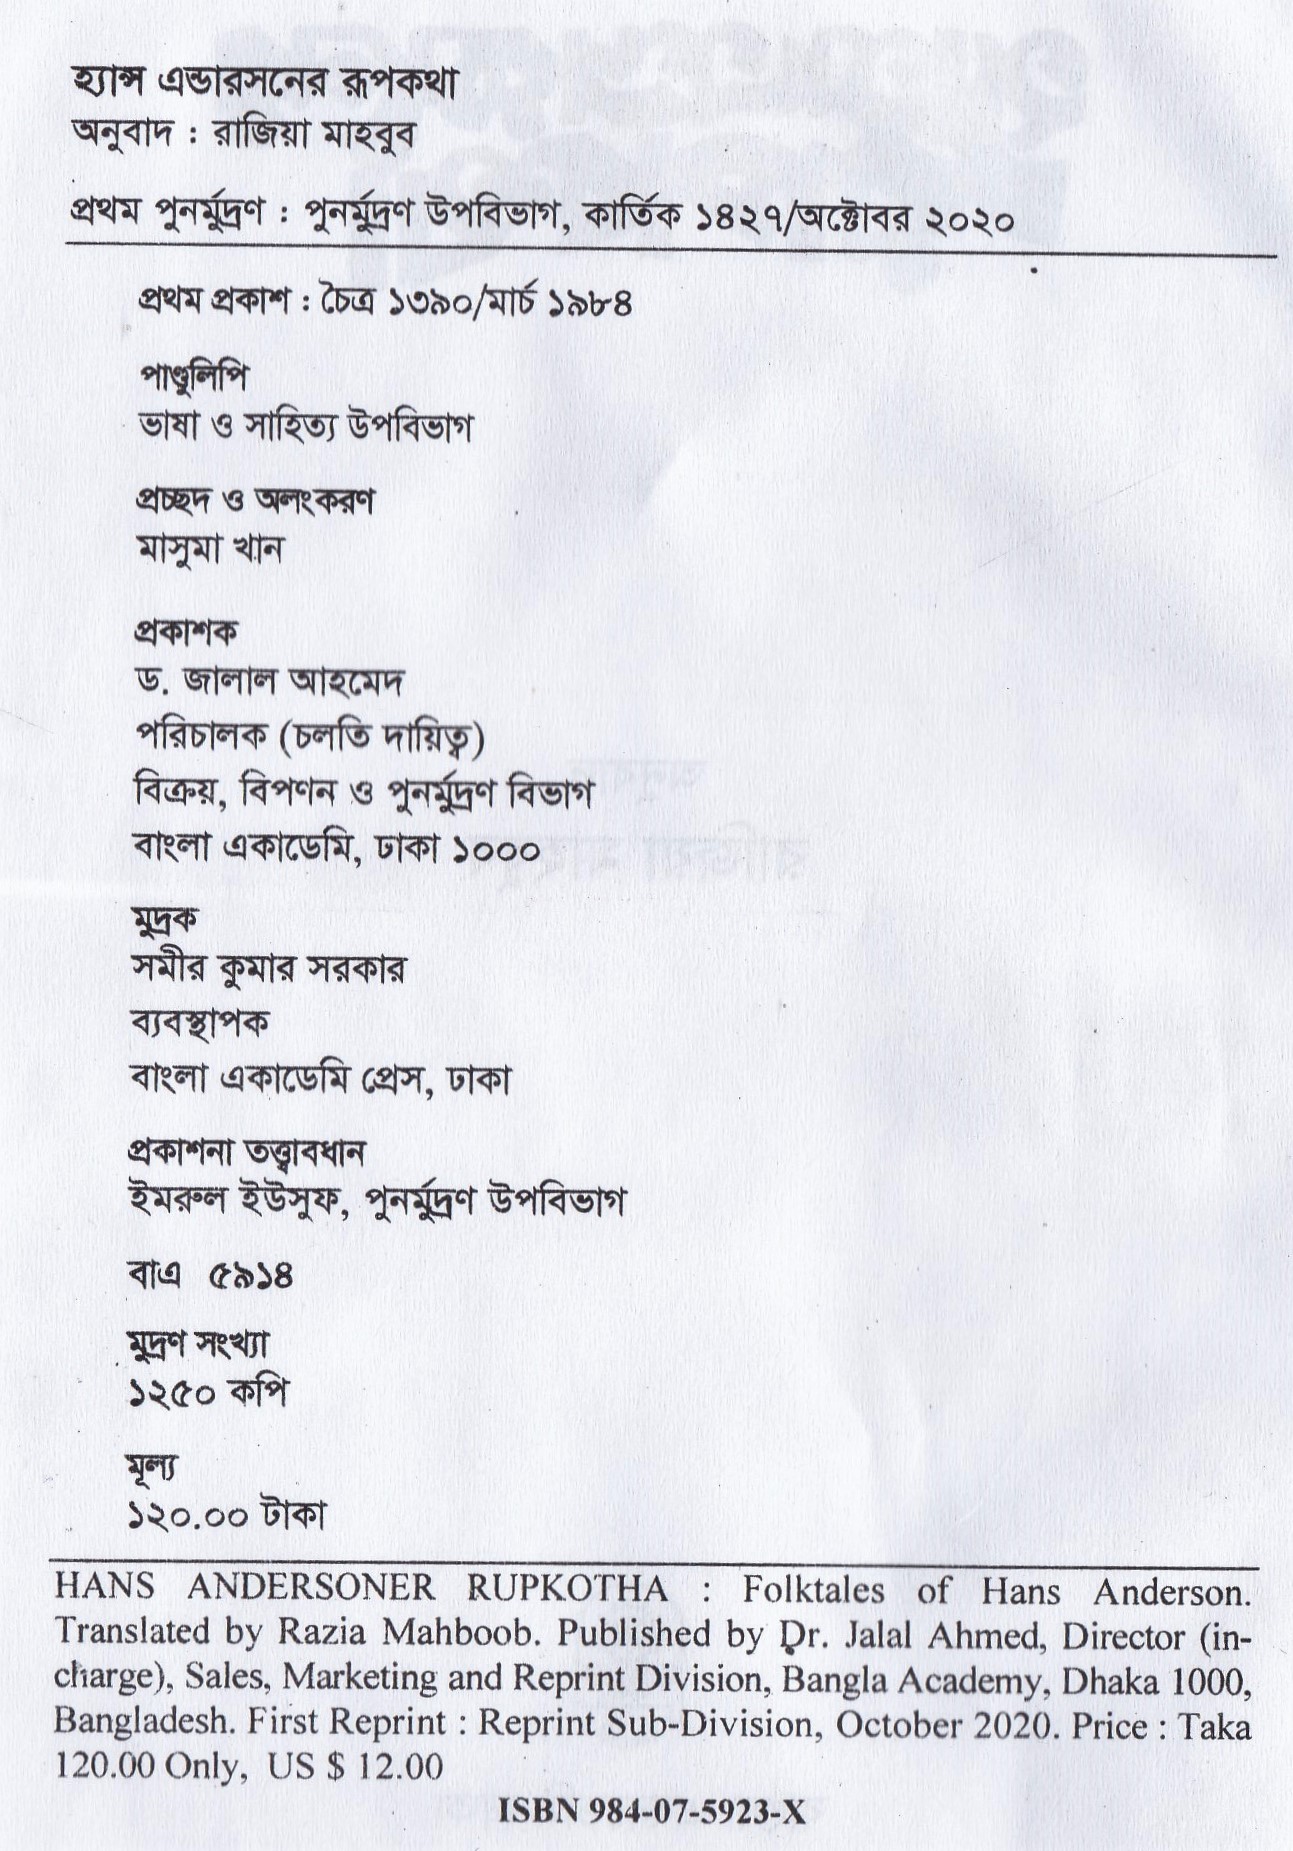 হ্যান্স এন্ডারসনের রূপকথা
অনুবাদ : রাজিয়া মাহবুব
প্রথম পুনর্মুদ্রণ : পুনর্মুদ্রণ উপবিভাগ, কার্তিক ১৪২৭/অক্টোবর ২০২০
প্রথম প্রকাশ : চৈত্র ১৩৯০/মার্চ ১৯৮৪
পাণ্ডুলিপি
ভাষা ও সাহিত্য উপবিভাগ
প্রচ্ছদ ও অলংকরণ
মাসুমা খান
প্রকাশক
ড. জালাল আহমেদ
পরিচালক (চলতি দায়িত্ব)
বিক্রয়, বিপণন ও পুনর্মুদ্রণ বিভাগ
বাংলা একাডেমি, ঢাকা ১০০০
মুদ্রক
সমীর কুমার সরকার
ব্যবস্থাপক
বাংলা একাডেমি প্রেস, ঢাকা
প্রকাশনা তত্ত্বাবধান
ইমরুল ইউসুফ, পুনর্মুদ্রণ উপবিভাগ
বাএ ৫৯১৪
মুদ্রণ সংখ্যা
১২৫০ কপি
মূল্য
১২০.০০ টাকা
HANS ANDERSONER RUPKOTHA : Folktales of Hans Anderson.
Translated by Razia Mahboob. Published by Dr. Jalal Ahmed, Director (in-
charge), Sales, Marketing and Reprint Division, Bangla Academy, Dhaka 1000,
Bangladesh. First Reprint : Reprint Sub-Division, October 2020. Price : Taka
120.00 Only, US $ 12.00
ISBN 984-07-5923-X